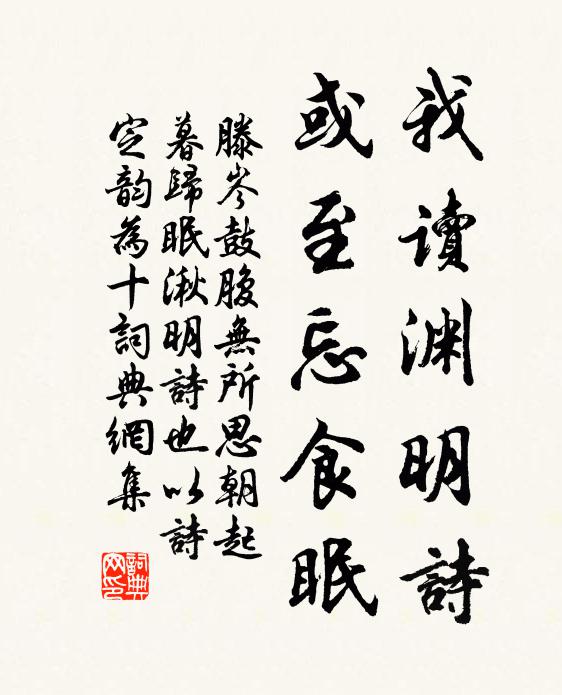 我讀渊明詩
或至忘食眠
滕岑鼓腹無所思朝起
暮歸眠湫明詩也以詩
定韵為十詞典網集
詞典網印